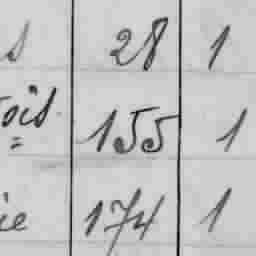 s 28 1
ois. 155 1
ie 174 1